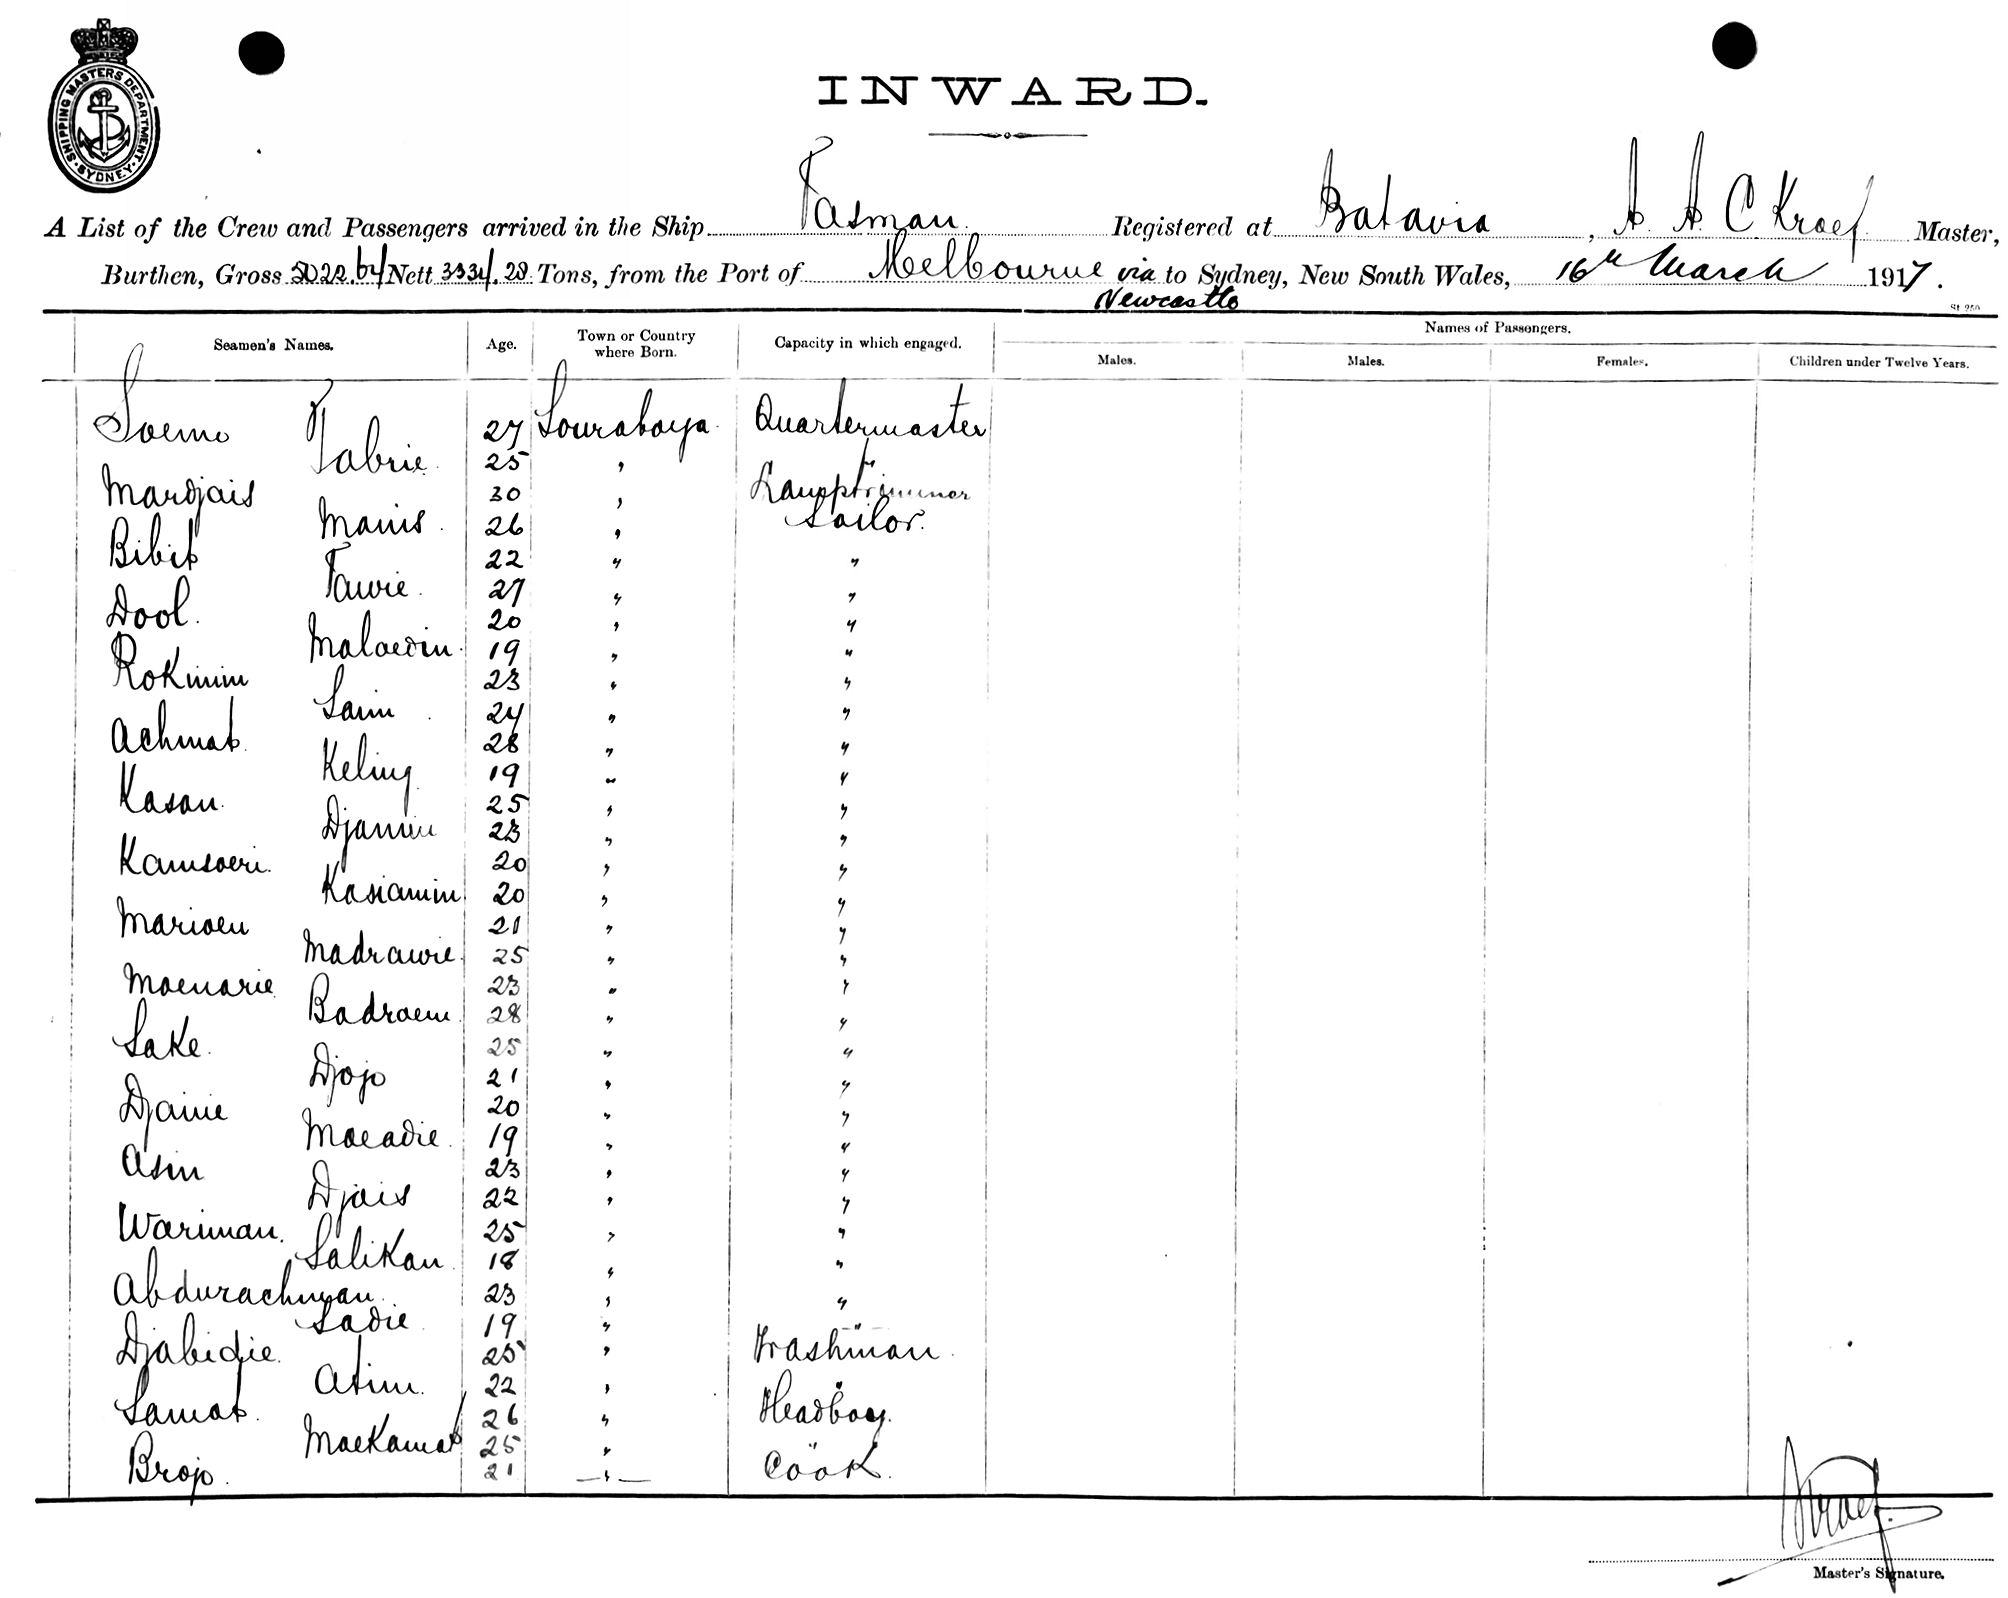 SHIPPING MASTERS DEPARTMENT. SYDNEY
INWARD.
A List of the Crew and Passengers arrived in the Ship Tasman. Registered at Batavia, A. A. C Kroef Master,
Burthen, Gross 5022.64 Nett 3334.28 Tons, from the Port of Melbourne via to Sydney, New South Wales, 16th March 1917.
Newcastle
St 250
Seamen's Names. Age. Town or Country where Born. Capacity in which engaged. Names of Passengers.
Males. Males. Females. Children under Twelve Years.
Soemo 27 Sourabaya Quartermaster
Tabrie 25 " "
Mardjais 30 " Lamptrimmer
Manis 26 " Sailor.
Bibit 22 " "
Tawie 27 " "
Dool. 20 " "
Maloedin 19 " "
Rokimin 23 " "
Saim 24 " "
Achmat 28 " "
Keling 19 " "
Kasan 25 " "
Djamin 23 " "
Kamsoeri 20 " "
Kasiamin 20 " "
Marioen 21 " "
Madrawie 25 " "
Moenarie 23 " "
Badroem 28 " "
Sake 25 " "
Djojo 21 " "
Djanie 20 " "
Moeadie 19 " "
Asin 23 " "
Djais 22 " "
Wariman. 25 " "
Salikan 18 " "
Abdurachman. 23 " "
Sadie 19 " "
Djabidie 25 "
Atim 22 " "
Samat 26 " Headboy.
Moekamat 25 " "
Brojo 21 " Cook.
Kroef.
Master's Signature.